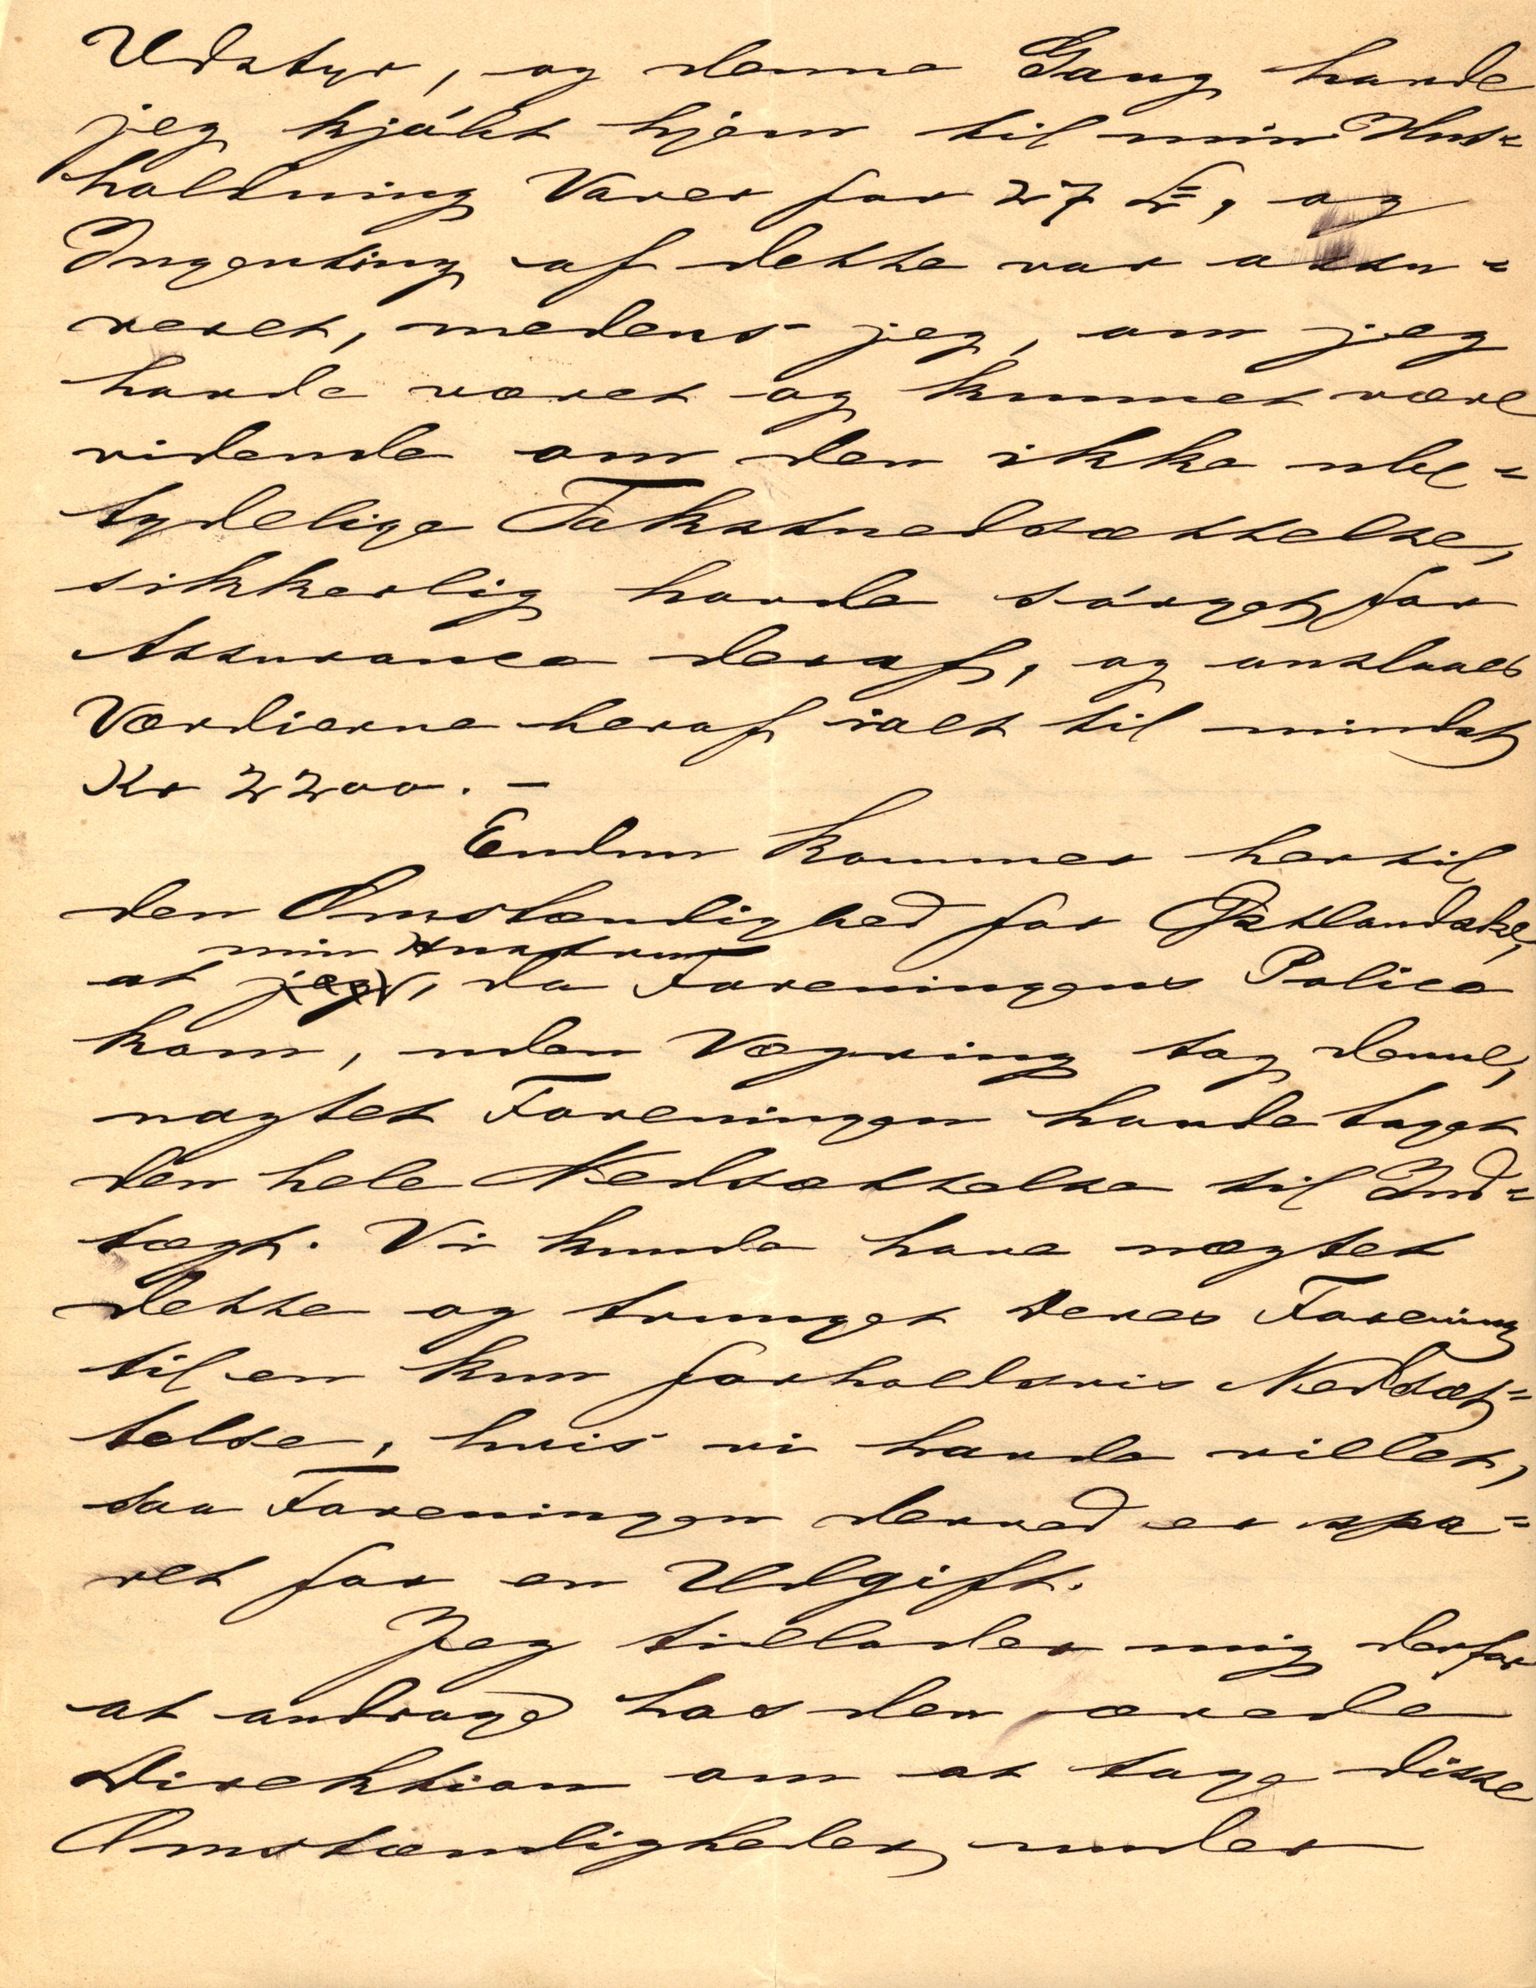 Udstyr, og denne Gang havde
jeg kjóbt hjem til min Hus=
holdning Varer for 27 £, og
Ingenting af dette var assu=
reret, medens jeg, om jeg
havde været og kunnet være
vidende om den ikke ube=
tydelige Takstnedsættelse,
sikkerlig havde sórget for
Assurance deraf, og anslaaes
Værdierne heraf ialt til mindst
Kr 2200.-
Endnu kommer hertil
den Omstændighed for Østlandske,
min Hustru
at jeg, da Foreningens Police
kom, uden Vægring tog denne,
uagtet Foreningen havde taget
den hele Nedsættelse til Ind=
tægt. Vi kunde have nægtet
dette og tvunget Deres Forening
til en kun forholdsvis Nedsæt=
telse, hvis vi havde villet,
saa Foreningen derved er spa=
ret for en Udgift.
Jeg tillader mig derfor
at andrage hos den ærede
Direktion om at tage disse
Omstændigheder under